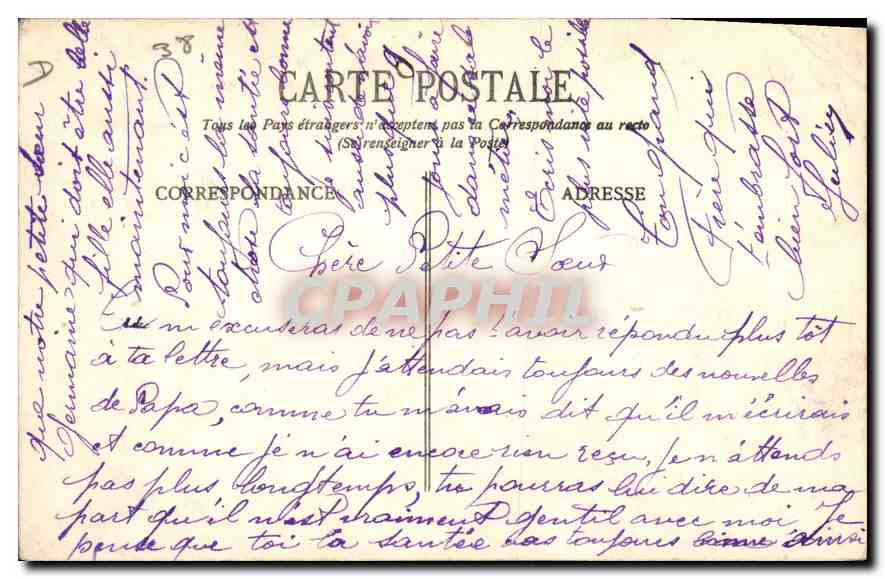 38
CARTE POSTALE
Tous les Pays étrangers n'acceptent pas la Correspondance au recto
(Se renseigner à la Poste)
CORRESPONDANCE
ADRESSE
CPAPHIL
Chère Petite Sœur
Tu m'excuseras de ne pas t'avoir répondu plus tôt
à ta lettre, mais j'attendais toujours des nouvelles
de Papa, comme tu m'avais dit qu'il m'écrirais
et comme je n'ai encore rien reçu, je n'attends
pas plus longtemps, tu pourras lui dire de ma
part qu'il n'est vraiment gentil avec moi Je
pense que toi la santée vas toujours ainsi
que notre petite sœur
Germaine qui doit être belle
fille elle aussi
maintenant.
Pour moi c'est
toujours la même
chose la santé est
toujours bonne
je suis content
aussi d'avoir
plus que
jours à faire
dans le sale
métier
Ecris moi le
plus vite possible
Ton grand
Frère qui
t'embrasse
bien fort